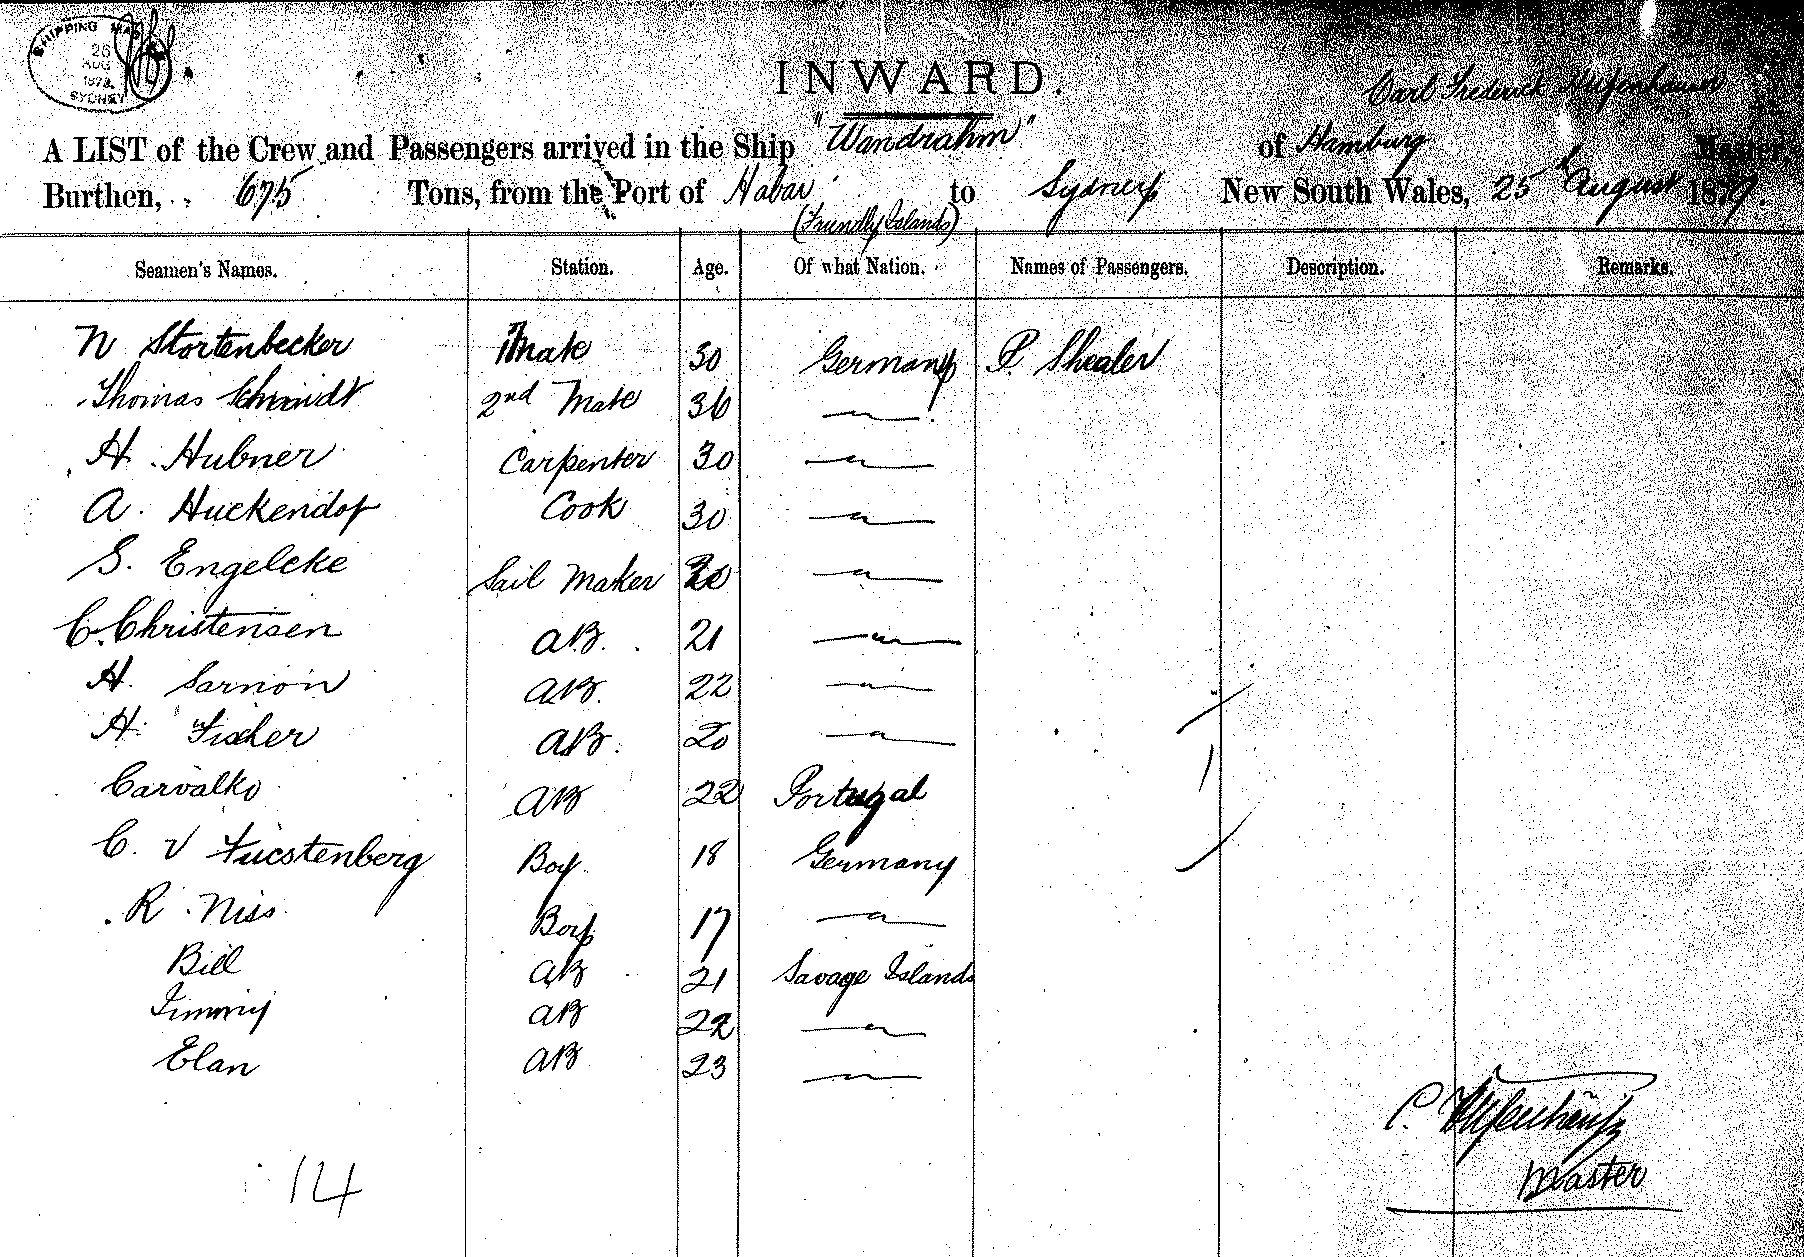 SHIPPING MAS
26
AUG
187
SYDNEY
INWARD.
Carl Frederick
A LIST of the Crew and Passengers arrived in the Ship "Wandrahm" of Hamburg Master,
Burthen, 675 Tons, from the Port of Habai to Sydney New South Wales, 25 August 1879.
(Friendly Islands)
Seamen's Names. Station. Age. Of what Nation. Names of Passengers. Description. Remarks.
N Stortenbecker Mate 30 Germany P. Shealer
Thomas Schmidt 2nd Mate 36 —"—
H. Hubner Carpenter 30 —"—
A. Huckendof Cook 30 —"—
S. Engelcke Sail Maker —"—
C. Christensen AB. 21 —"—
H. Sarnon AB. 22 —"—
H. Fischer AB. 20 —"—
Carvalko AB 22 Portugal
C. V Fuestenberg Boy 18 Germany
R. Niss Boy 17 —"—
Bill AB 21 Savage Islands
Jimmy AB 22 —"—
Elan AB 23 —"—
C.
Master
14